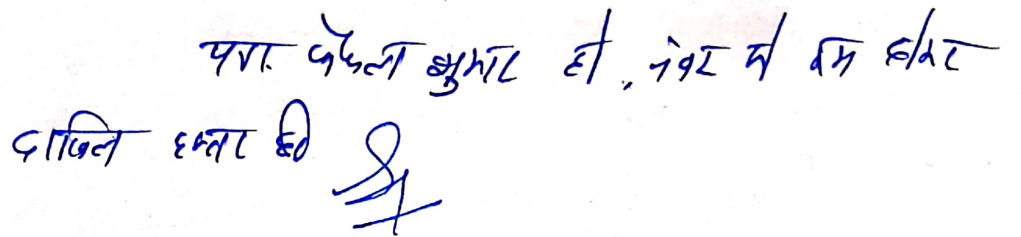 पत्रा. फैसला शुमार हो, नंबर से कम होकर
दाखिल दफ्तर हो